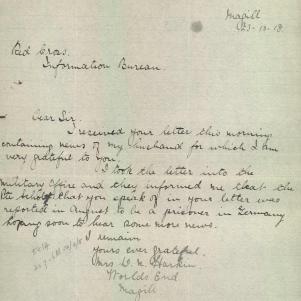 Magill
23-10-18
Red Cross.
Information Bureau.
Dear Sir,
I received your letter this morning
containing news of my husband for which I am
very grateful to you.
I took the letter into the
military office and they informed me that the
Pte that you speak of in your letter was
reported in August to be a prisoner in Germany
hoping soon to hear some more news.
I remain
yours ever grateful.
Mrs
Worlds End
Magill